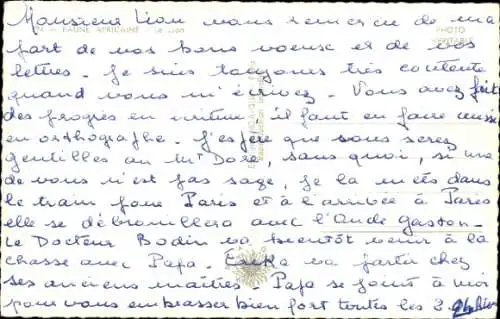 Monsieur Lion vous remercie de ma
FAUNE AFRICAINE - Le Lion
PHOTO VÉRITABLE
part de vos bons voeux et de vos
lettres. Je suis toujours très contente
quand vous m'écrivez. Vous avez fait
des progrès en écriture. il faut en faire aussi
en orthographe. J'espère que vous serez
gentilles au Mt Dore, sans quoi, si une
de vous n'est pas sage, je la mets dans
le train pour Paris et à l'arrivée à Paris
elle se débrouillera avec l'Oncle Gaston.
Le Docteur Bodin va bientôt venir à la
chasse avec Papa. va partir chez
ses anciens maîtres. Papa se joint à moi
pour vous embrasser bien fort toutes les 2.